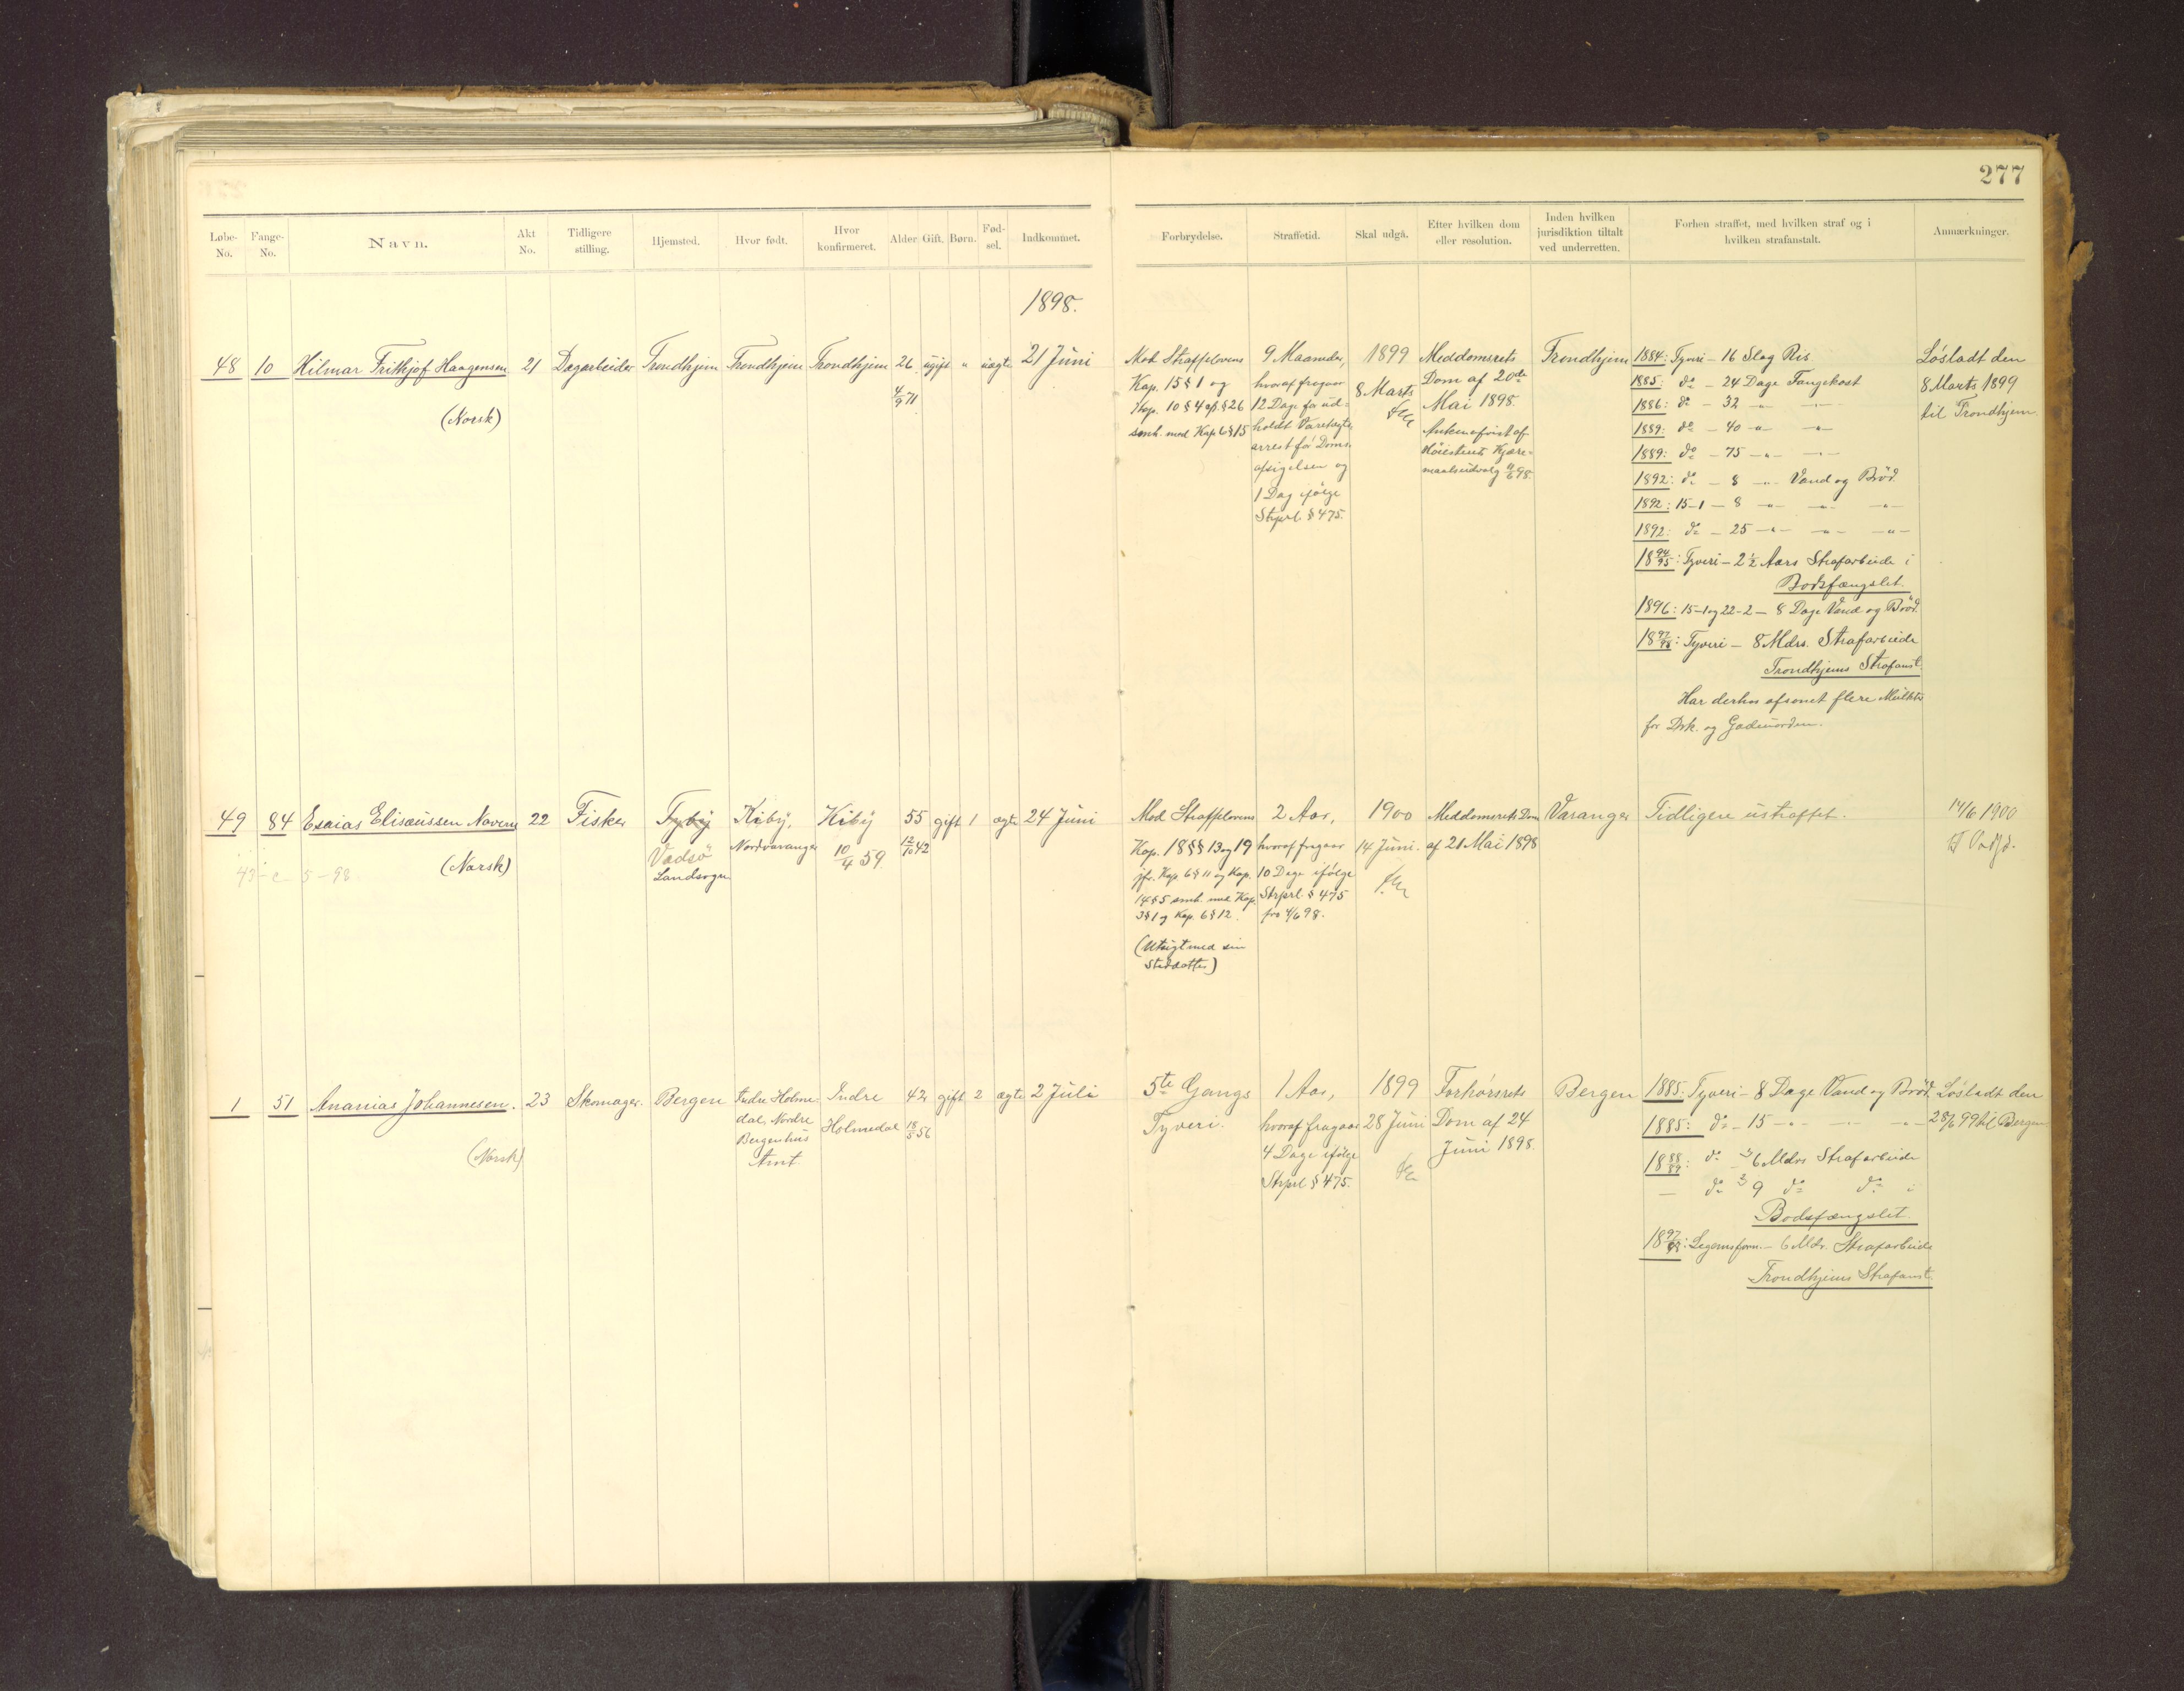 277
Løbe-No. Fange-No. Navn. Akt No. Tidligere stilling. Hjemsted. Hvor født. Hvor konfirmeret. Alder. Gift. Børn. Fød-sel. Indkommet. Forbrydelse. Straffetid. Skal udgå. Efter hvilken dom eller resolution. Inden hvilken jurisdiktion tiltalt ved underretten. Forhen straffet, med hvilken straf og i hvilken strafanstalt. Anmærkninger.
1898.
48 10 Hilmar Frithjof Haagensen 21 Dagarbeider Trondhjem Trondhjem Trondhjem 26 ugift " uægte 21 Juni
4/9 71
(Norsk)
Mod Straffelovens
Kap. 15 § 1 og
Kap. 10 § 4 cfr. § 26
smh. med Kap. 6 § 15
9 Maaneder,
hvoraf fragaar
12 Dage for ud-
holdt Varetægts
arrest før Doms-
afsigelsen og
1 Dag ifølge
Strprl. § 475.
1899
8 Marts
Meddomsrets
Dom af 20de
Mai 1898.
Anken afvist af
Høiesterets Kjære-
maalsudvalg 9/6 98.
Trondhjem
1884: Tyveri - 16 Slag Ris
1885: do - 24 Dage Fangekost
1886: do - 32 -"- -"-
1889: do - 40 -"- -"-
1889: do - 75 -"- -"-
1892: do - 8 -"- Vand og Brød.
1892: 15-1 - 8 -"- -"- -"-
1892: do - 25 -"- -"- -"-
18 94/95: Tyveri - 2 1/2 Aars Strafarbeide i
Bodsfængslet.
1896: 15-1 og 22-2 - 8 Dage Vand og Brød.
18 97/98: Tyveri - 8 Mdrs. Strafarbeide
Trondhjems Strafanst.
Har derhos afsonet flere Mulkter
for Drk. og Gadeuorden.
Løsladt den
8 Marts 1899
til Trondhjem.
49 84 Esaias Elisæussen Navem 22 Fisker Tybij Kiby, Kiby 55 gift 1 ægte 24 Juni
Vadsø
Landsogn
Nordvaranger
10/4 59
12/10 42
(Norsk)
Mod Straffelovens
Kap. 18 §§ 13 og 19
jfr. Kap. 6 § 11 og Kap.
14 § 5 smh. med Kap.
3 § 1 og Kap. 6 § 12.
(Utugt med sin
Steddatter)
2 Aar,
hvoraf fragaar
10 Dage ifølge
Strprl. § 475
fra 4/6 98.
1900
14 Juni.
Meddomsrets Dom
af 21 Mai 1898
Varanger
Tidligere ustraffet.
14/6 1900
1 51 Ananias Johannesen. 23 Skomager. Bergen Indre Holme-
dal, Nordre
Bergenhus
Amt.
Indre
Holmedal
42 gift 2 ægte 2 Juli
18/5 56
(Norsk)
5te Gangs
Tyveri.
1 Aar,
hvoraf fragaar
4 Dage ifølge
Strprl. § 475.
1899
28 Juni
Forhørsrets
Dom af 24
Juni 1898.
Bergen
1885: Tyveri - 8 Dage Vand og Brød.
1885: do - 15 -"- -"- -"-
18 88/89: do - 6 Mdrs Strafarbeide
- do 9 do do i
Bodsfængslet.
18 97/98: Legemsforn. - 6 Mdr. Strafarbeide
Trondhjems Strafanst.
Løsladt den
28/6 99 til Bergen